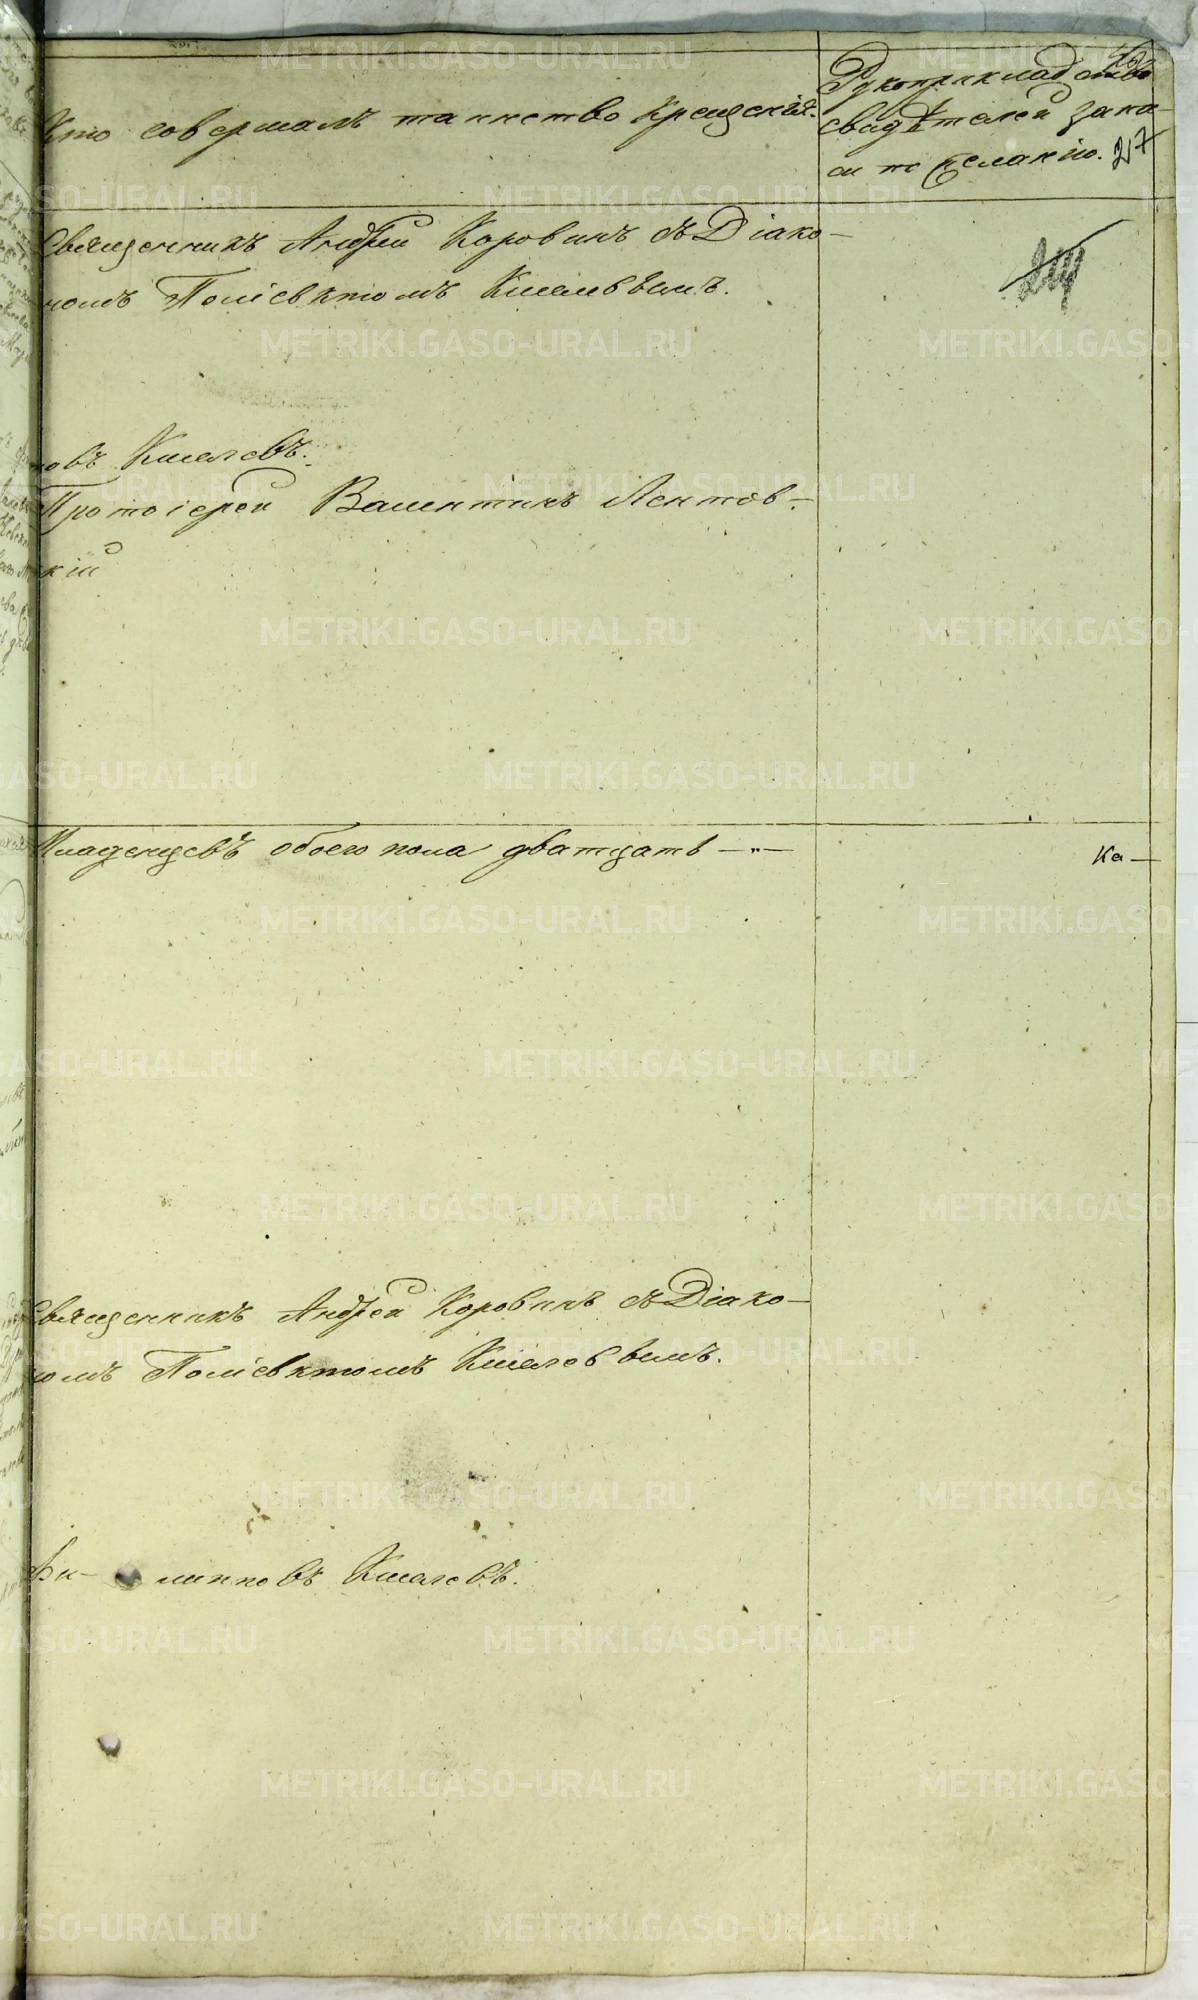 Кто совершалъ таинство крещенія.
Рукоприкладство
свидѣтелей запи-
си по желанію. 217
Священникъ Андрей Коровинъ съ Діако-
номъ Поліевктомъ Киселевымъ.
новъ Киселевъ.
Протоіерей Валентинъ Лентов-
скій
Младенцевъ обоего пола дватцать —„—
Ка—
Священникъ Андрей Коровинъ съ Діако-
номъ Поліевктомъ Киселевымъ.
новъ Киселевъ.
METRIKI.GASO-URAL.RU